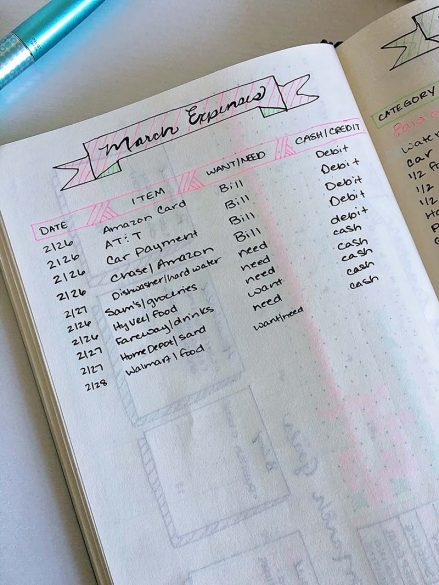 March Expenses
DATE ITEM WANT/NEED CASH/CREDIT
2/26
2/26
2/26
2/26
2/27
2/26
2/26
2/27
2/27
2/28
Amazon Card
AT:T
Car payment
Chase/Amazon
Dishwasher/hard water
Sam's/groceries
HyVee/food
Fareway/drinks
HomeDepot/sand
Walmart/food
Bill
Bill
Bill
Bill
need
need
want
need
want/need
Debit
Debit
Debit
Debit
debit
cash
cash
cash
cash
cash
CATEGORY